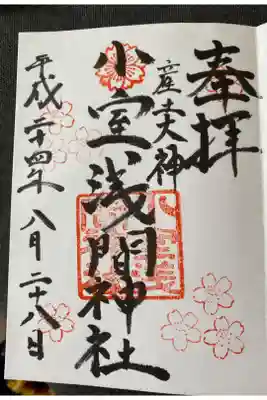 奉拝
産土大神
小室浅間神社
平成二十四年八月二十八日